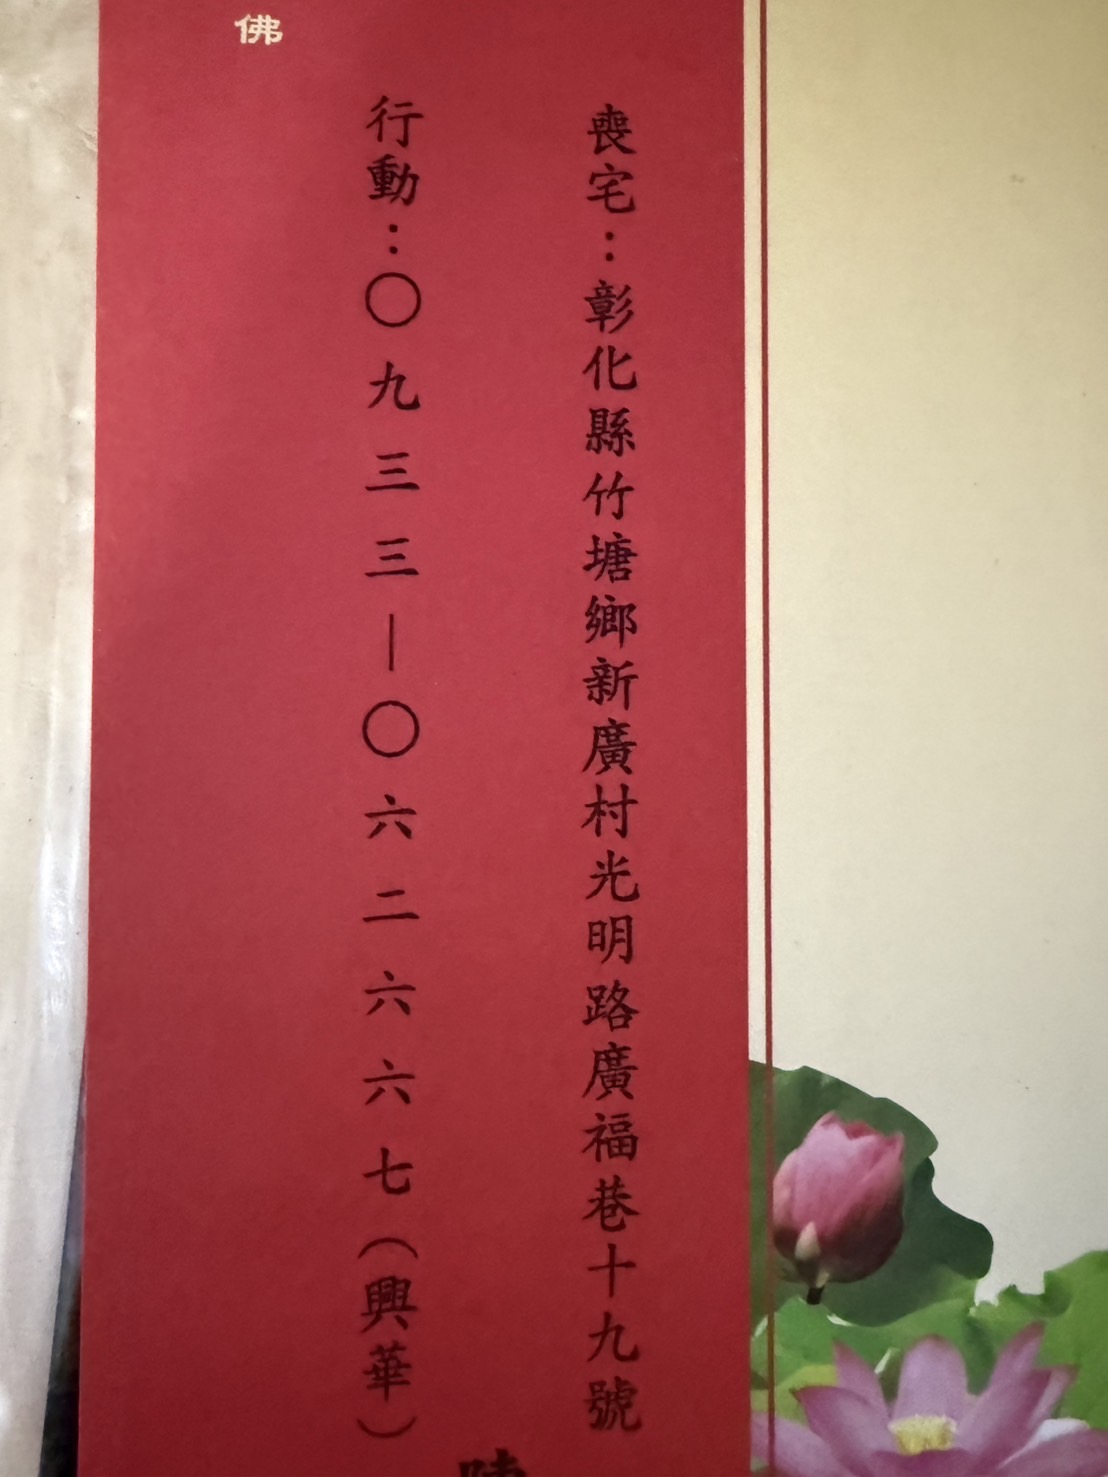 喪宅：彰化縣竹塘鄉新廣村光明路廣福巷十九號
行動：〇九三三｜〇六二六六七（興華）
佛